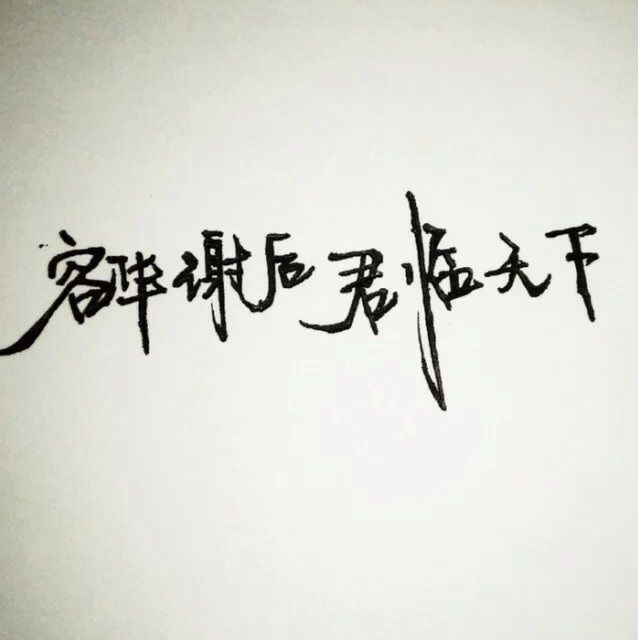 容华谢后君临天下